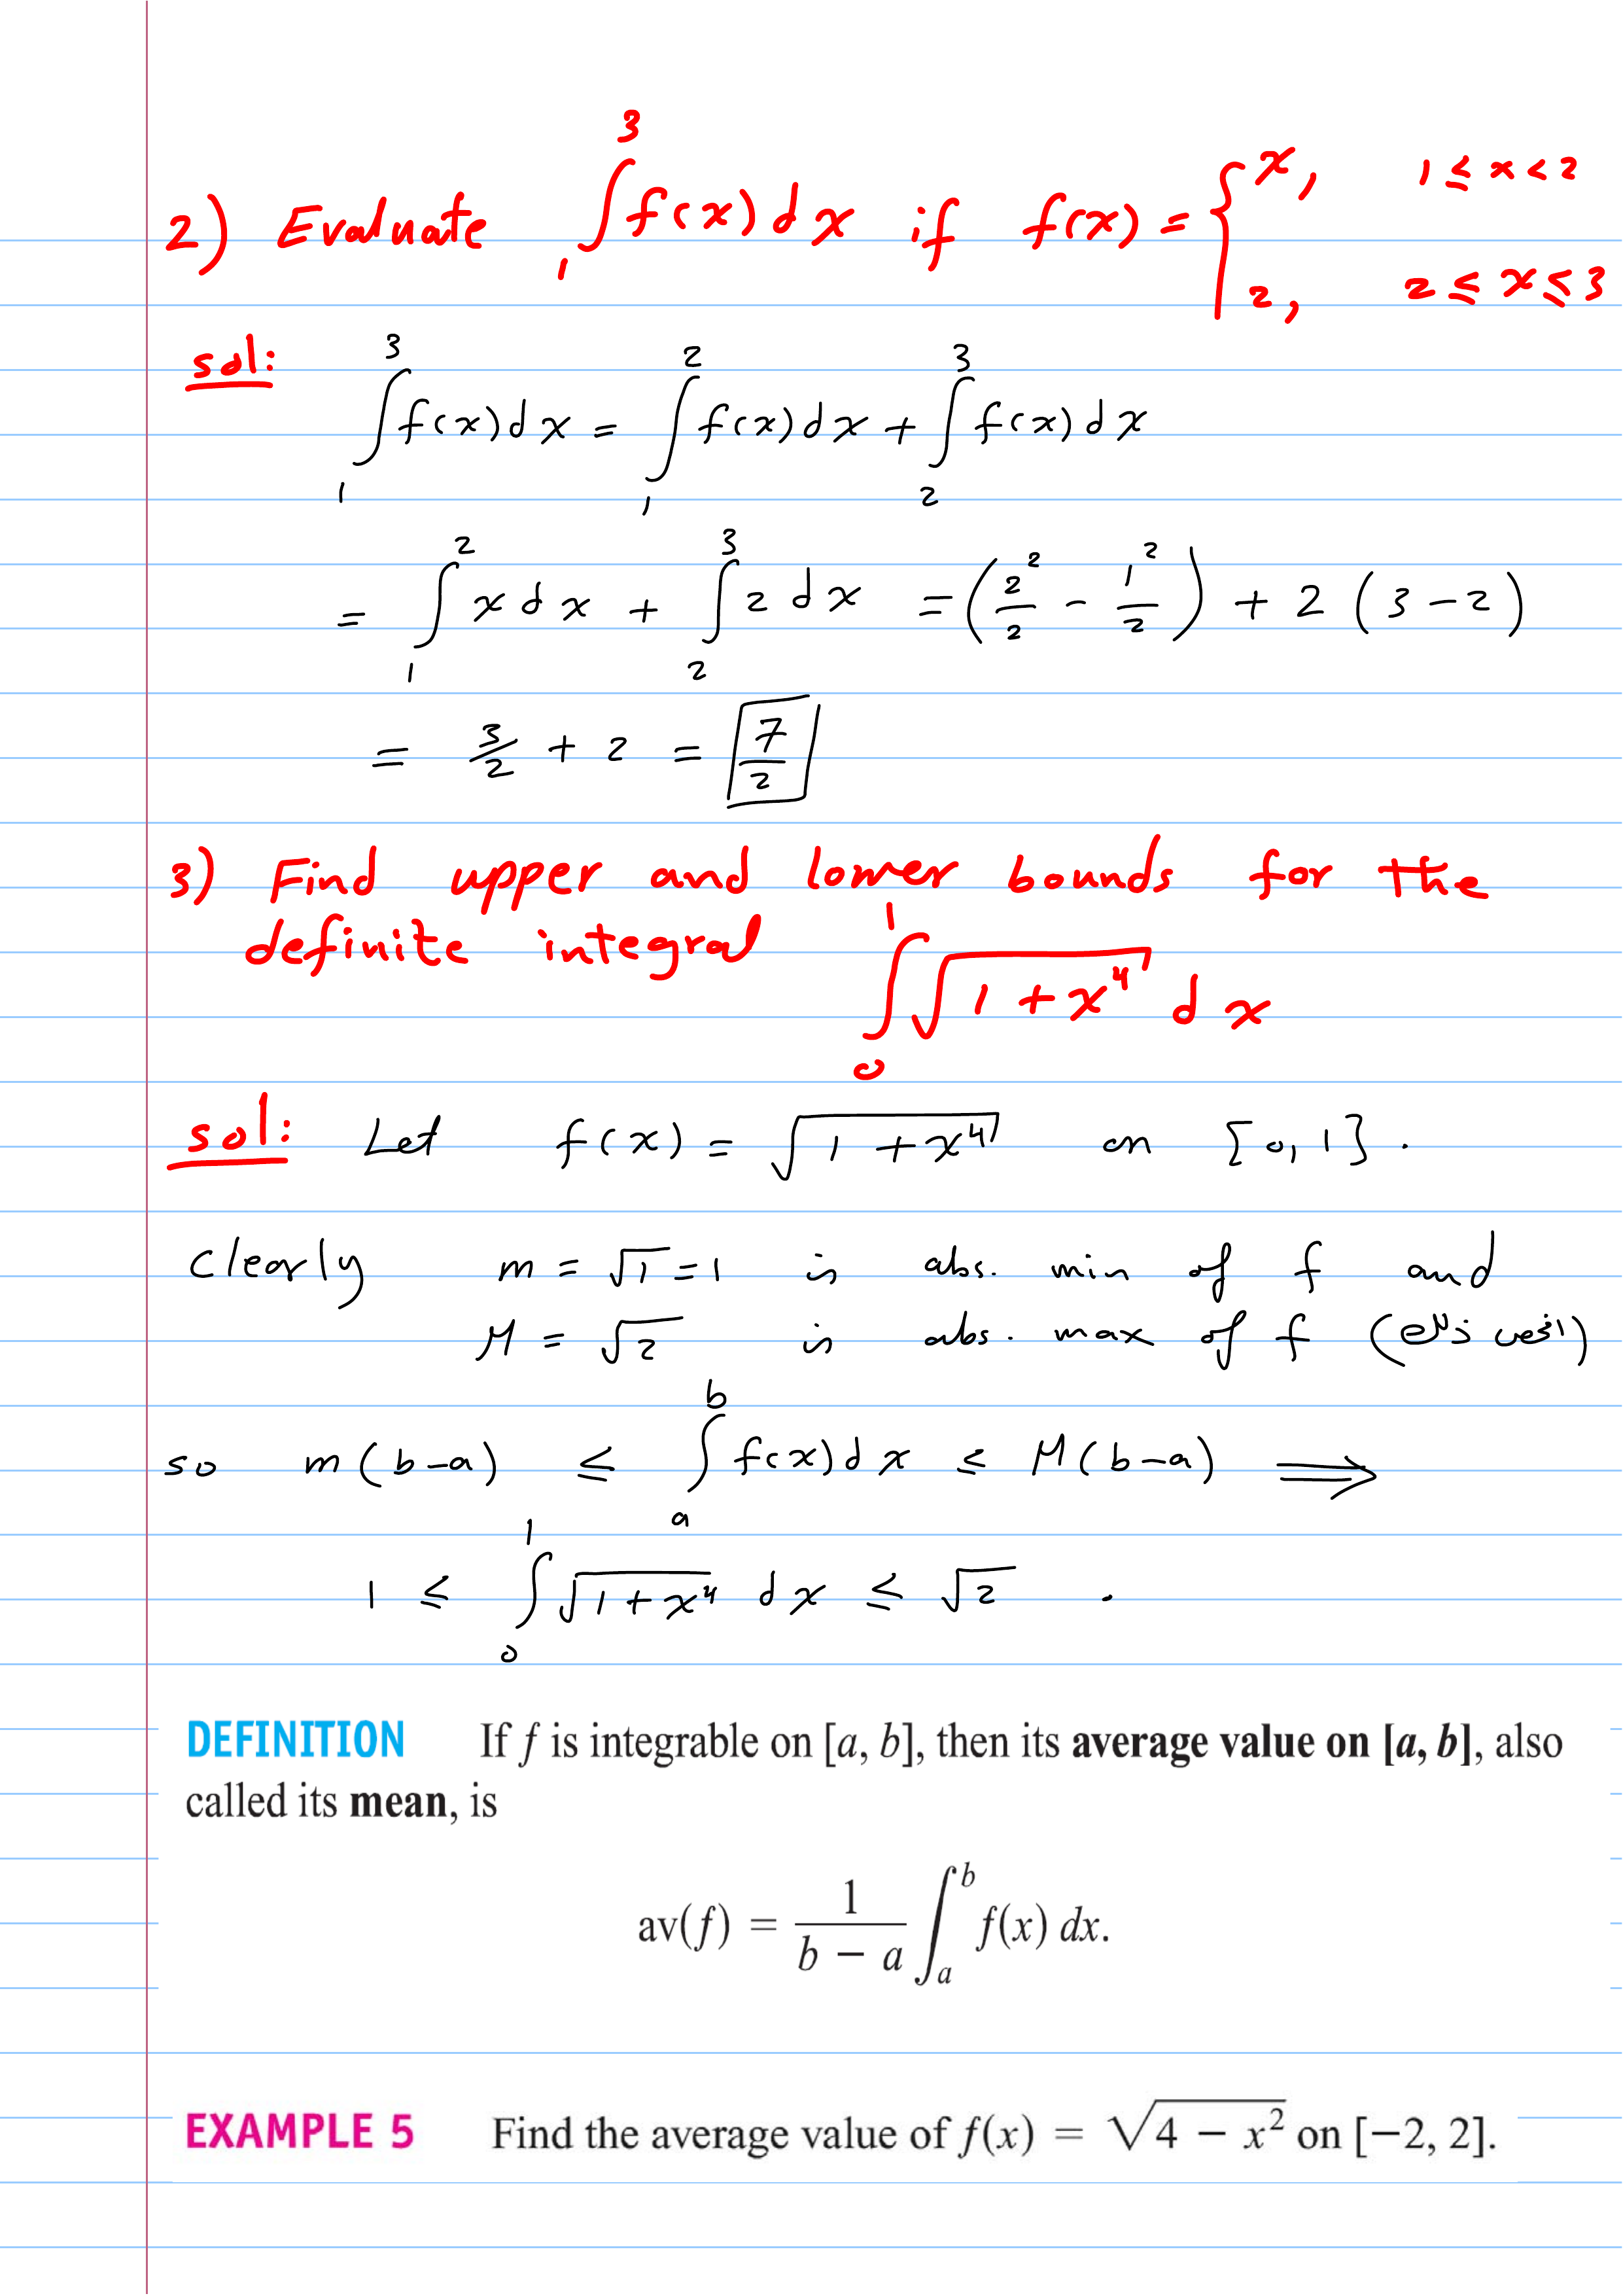 2) Evaluate ∫₁³ f(x) dx if f(x) = { x, 1 ≤ x < 2
2, 2 ≤ x ≤ 3
sol:
∫₁³ f(x) dx = ∫₁² f(x) dx + ∫₂³ f(x) dx
= ∫₁² x dx + ∫₂³ 2 dx = (2²/2 - 1²/2) + 2 (3 - 2)
= 3/2 + 2 = 7/2
3) Find upper and lower bounds for the
definite integral ∫₀¹ √(1 + x⁴) dx
sol: Let f(x) = √(1 + x⁴) on [0, 1].
Clearly m = √1 = 1 is abs. min of f and
M = √2 is abs. max of f
so m(b-a) ≤ ∫ₐᵇ f(x) dx ≤ M(b-a) ⟹
1 ≤ ∫₀¹ √(1 + x⁴) dx ≤ √2 .
DEFINITION If f is integrable on [a, b], then its average value on [a, b], also
called its mean, is
av(f) = 1/(b − a) ∫ₐᵇ f(x) dx.
EXAMPLE 5 Find the average value of f(x) = √(4 − x²) on [−2, 2].